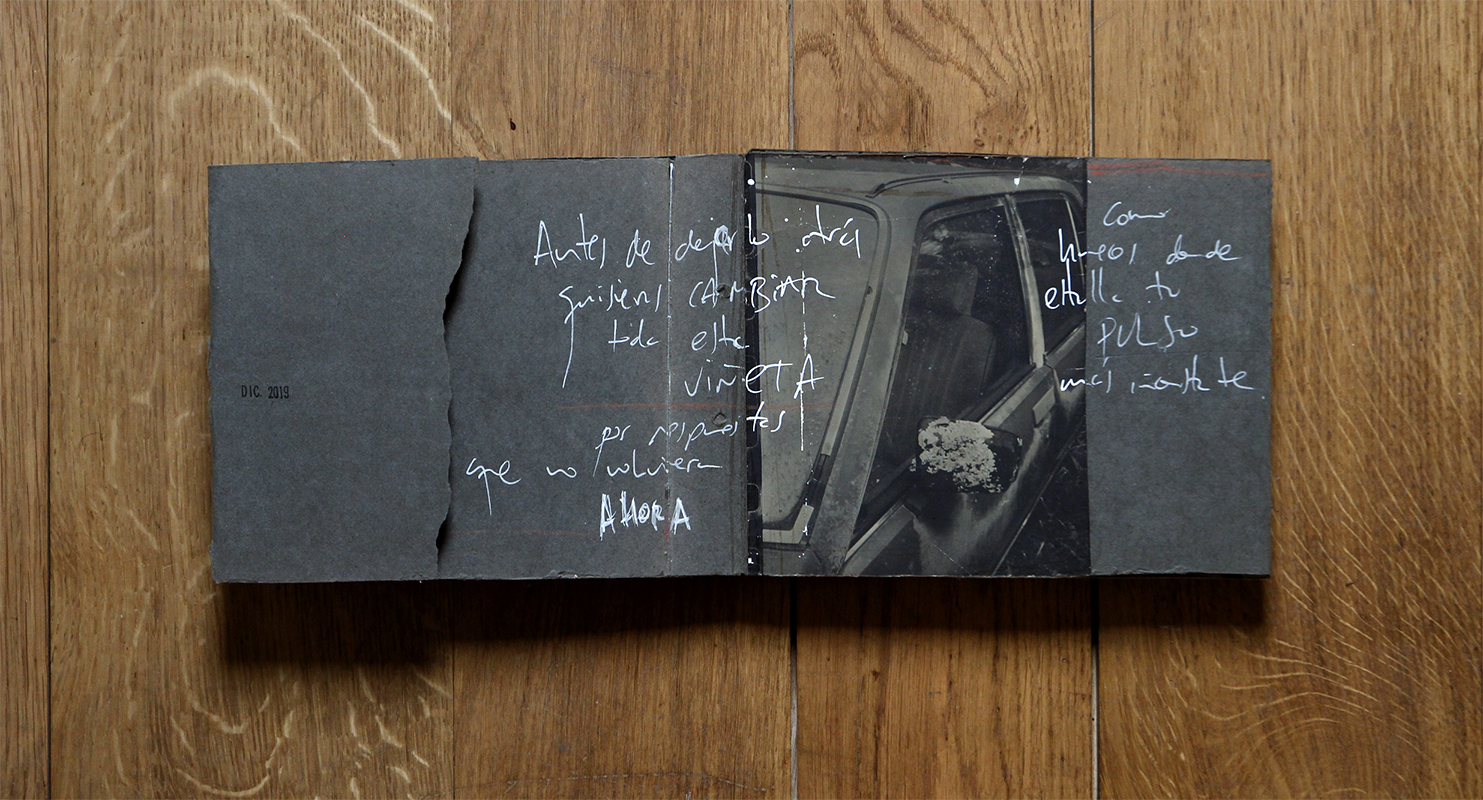 DIC. 2019
Antes de dejarlo atrás
quisiera CAMBIAR
toda esta
VIÑETA
por respuestas
que no volvieran
AHORA
Como
huecos donde
estalla tu
PULSO
más constante